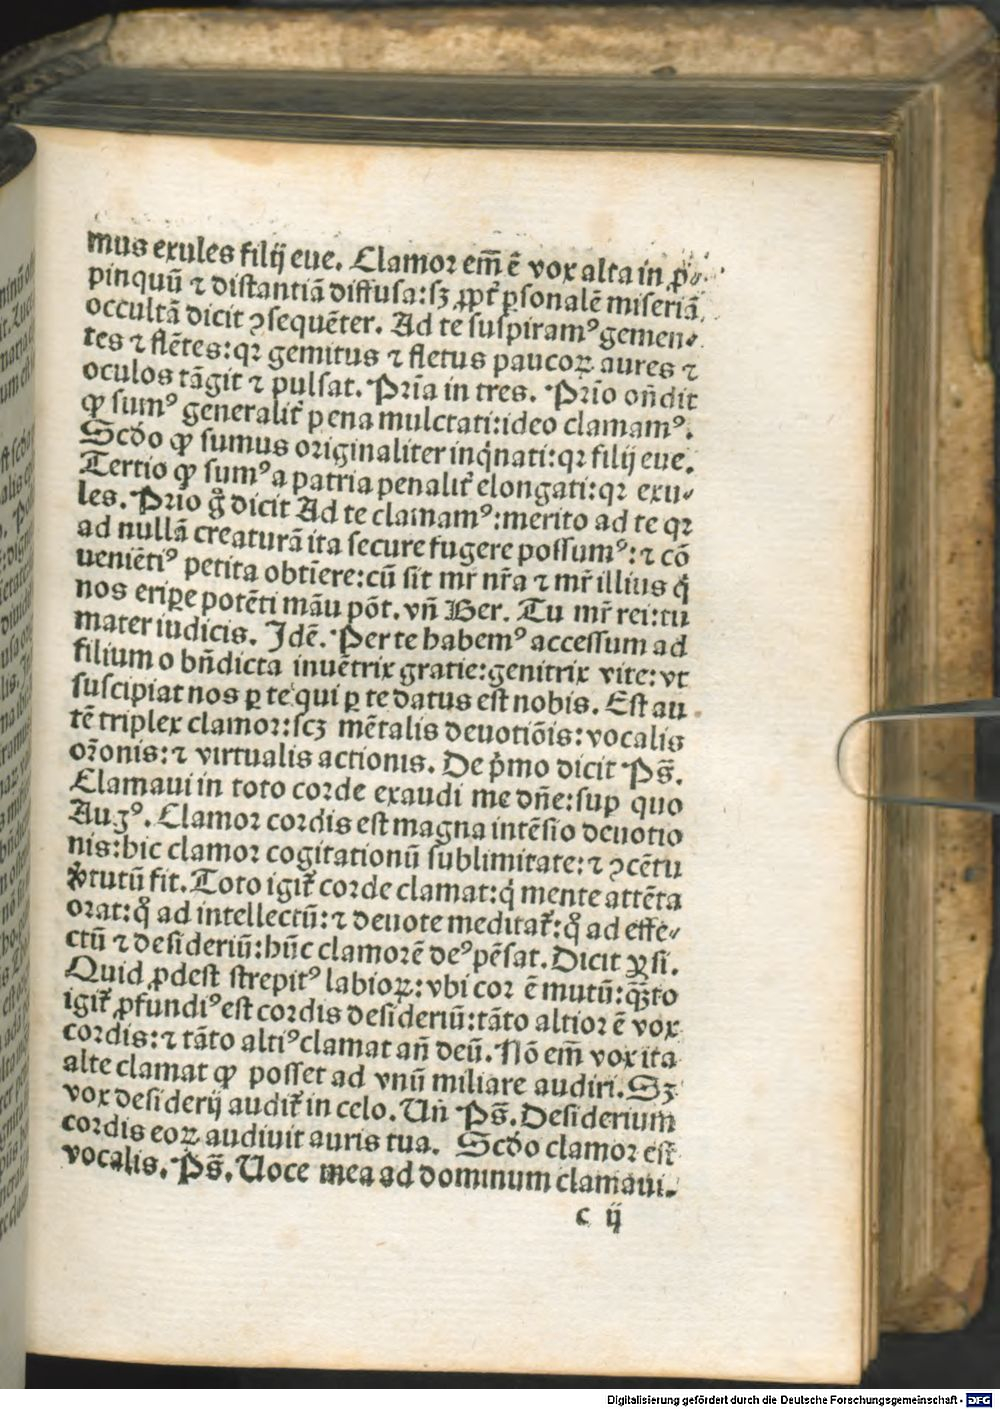 mus exules filij eue. Clamor em̄ ē vox alta in ꝓ⸗
pinquū ⁊ distantiā diffusa: sꝫ ꝓpt̄ ꝑsonalē miseriā
occultā dicit ꝯsequēter. Ad te suspiramꝰ gemen⸗
tes ⁊ flētes: qꝛ gemitus ⁊ fletus paucoꝝ aures ⁊
oculos tāgit ⁊ pulsat. Pria in tres. Prīo on̄dit
ꝙ sumꝰ generalit̄ pena mulctati: ideo clamamꝰ.
Scd̄o ꝙ sumus originaliter inq̇nati: qꝛ filij eue.
Tertio ꝙ sumꝰ a patria penalit̄ elongati: qꝛ exu⸗
les. Prīo g̊ dicit Ad te clamamꝰ: merito ad te qꝛ
ad nullā creaturā ita secure fugere possumꝰ: ⁊ cō
ueniētiꝰ petita obtīere: cū sit mr̄ nr̄a ⁊ mr̄ illius q̇
nos eriꝑe potēti māu pōt. vn̄ Ber. Tu mr̄ rei: tu
mater iudicis. Idē. Per te habemꝰ accessum ad
filium o bn̄dicta inuētrix gratie: genitrix vite: vt
suscipiat nos ꝑ te qui ꝑ te datus est nobis. Est au
tē triplex clamor: scꝫ mētalis deuotiōis: vocalis
or̄onis: ⁊ virtualis actionis. De p̓mo dicit Ps̄.
Clamaui in toto corde exaudi me dn̄e: suꝑ quo
Augꝰ. Clamor cordis est magna intēsio deuotio
nis: hic clamor cogitationū sublimitate: ⁊ ꝯcētu
v̓tutū fit. Toto igit̄ corde clamat: q̇ mente attēta
orat: q̊ ad intellectū: ⁊ deuote meditat̄: q̊ ad effe⸗
ctū ⁊ desideriū: hūc clamorē deꝰ pēsat. Dicit Ꝑsi.
Quid ꝓdest strepitꝰ labioꝝ: vbi cor ē mutū: q̄to
igit̄ ꝓfundiꝰ est cordis desideriū: tāto altior ē vox
cordis: ⁊ tāto altiꝰ clamat an̄ deū. Nō em̄ vox ita
alte clamat ꝙ posset ad vnū miliare audiri. Sꝫ
vox desiderij audit̄ in celo. Vn̄ Ps̄. Desiderium
cordis eoꝝ audiuit auris tua. Scd̄o clamor est
vocalis. Ps̄. Uoce mea ad dominum clamaui.
c ij
Digitalisierung gefördert durch die Deutsche Forschungsgemeinschaft - DFG